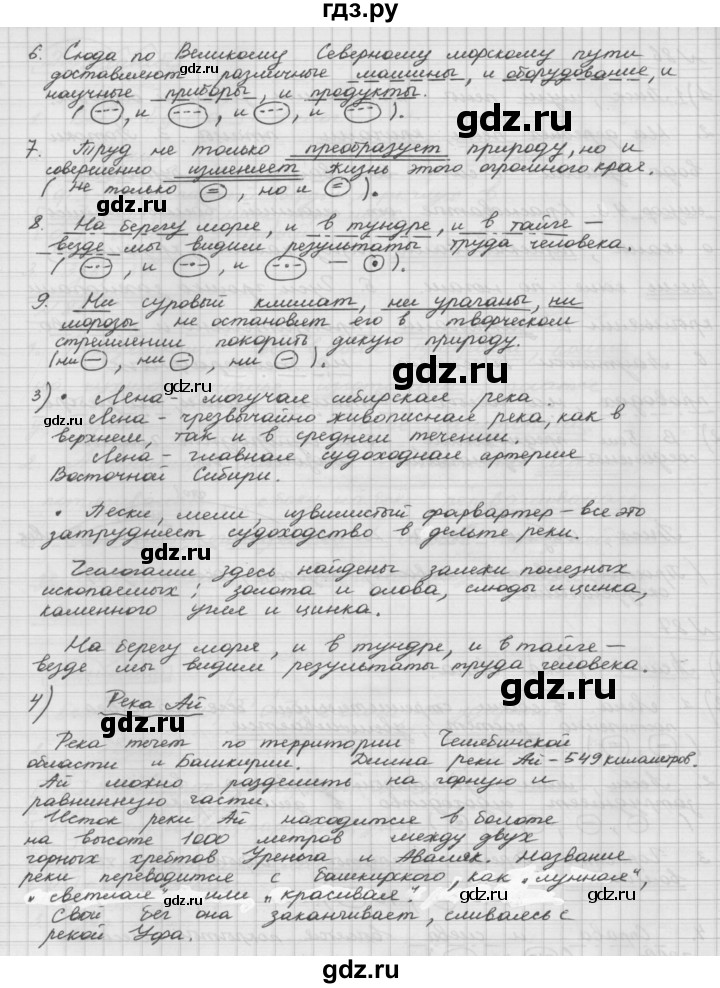 гдз.ру
6. Сюда по Великому Северному морскому пути
доставляют различные машины, и оборудование, и
научные приборы, и продукты.
( ---, и ---, и ---, и --- ).
gdz.ru
7. Труд не только преобразует природу, но и
совершенно изменяет жизнь этого огромного края.
( не только =, но и = ).
gdz.ru
8. На берегу моря, и в тундре, и в тайге –
везде мы видим результаты труда человека.
( -·-, и -·-, и -·- – ⊙ ).
gdz.ru
9. Ни суровый климат, ни ураганы, ни
морозы не остановят его в творческом
стремлении покорить дикую природу.
(ни –, ни –, ни – ).
gdz.ru
3) • Лена – могучая сибирская река.
gdz.ru
gdz.ru
Лена – чрезвычайно живописная река, как в
верхнем, так и в среднем течении.
Лена – главная судоходная артерия
Восточной Сибири.
gdz.ru
• Пески, мели, извилистый фарвартер – все это
затрудняет судоходство в дельте реки.
gdz.ru
Геологами здесь найдены залежи полезных
ископаемых: золота и олова, слюды и цинка,
каменного угля и цинка.
На берегу моря, и в тундре, и в тайге –
везде мы видим результаты труда человека.
gdz.ru
4) Река Ай
gdz.ru
Река течет по территории Челябинской
области и Башкирии. Длина реки Ай – 549 километров.
Ай можно разделить на горную и
равнинную части.
gdz.ru
Исток реки Ай находится в болоте
на высоте 1000 метров между двух
горных хребтов Уреньга и Аваляк. Название
реки переводится с башкирского, как „лунная",
„светлая" или „красивая".
gdz.ru
Свой бег она заканчивает, сливаясь с
рекой Уфа.
gdz.ru
gdz.ru